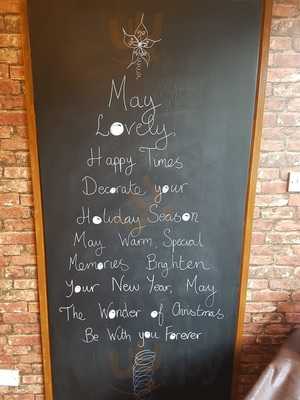 May
Lovely
Happy Times
Decorate your
Holiday Season
May Warm, Special
Memories Brighten
Your New Year, May
The Wonder of Christmas
Be With you Forever